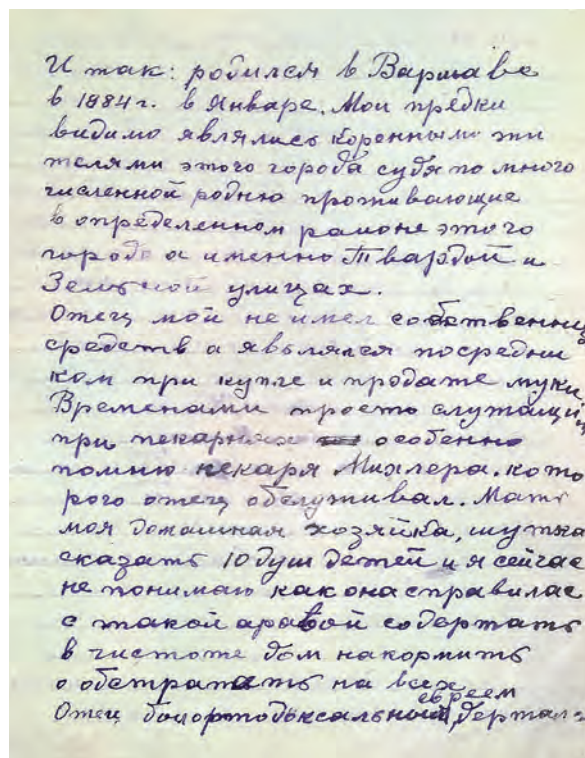 И так: родился в Варшаве
в 1884 г. в Январе. Мои предки
видимо являлись коренными жи
телями этого города судя по много
численной родню проживающие
в определенном районе этого
города а именно Твардой и
улицах.
Отец мой не имел собственных
средств а являлся посредни
ком при купле и продаже муки.
Временами просто служащим
при пекарнях особенно
помню пекаря Михлера. кото
рого отец обслуживал. Мать
моя домашная хозяйка, шутка
сказать 10 душ детей и я сейчас
не понимаю как она справилас
с такой аравой содержать
в чистоте дом накормить
обстратать на всех
Отец был ортодьксальный евреем, держал